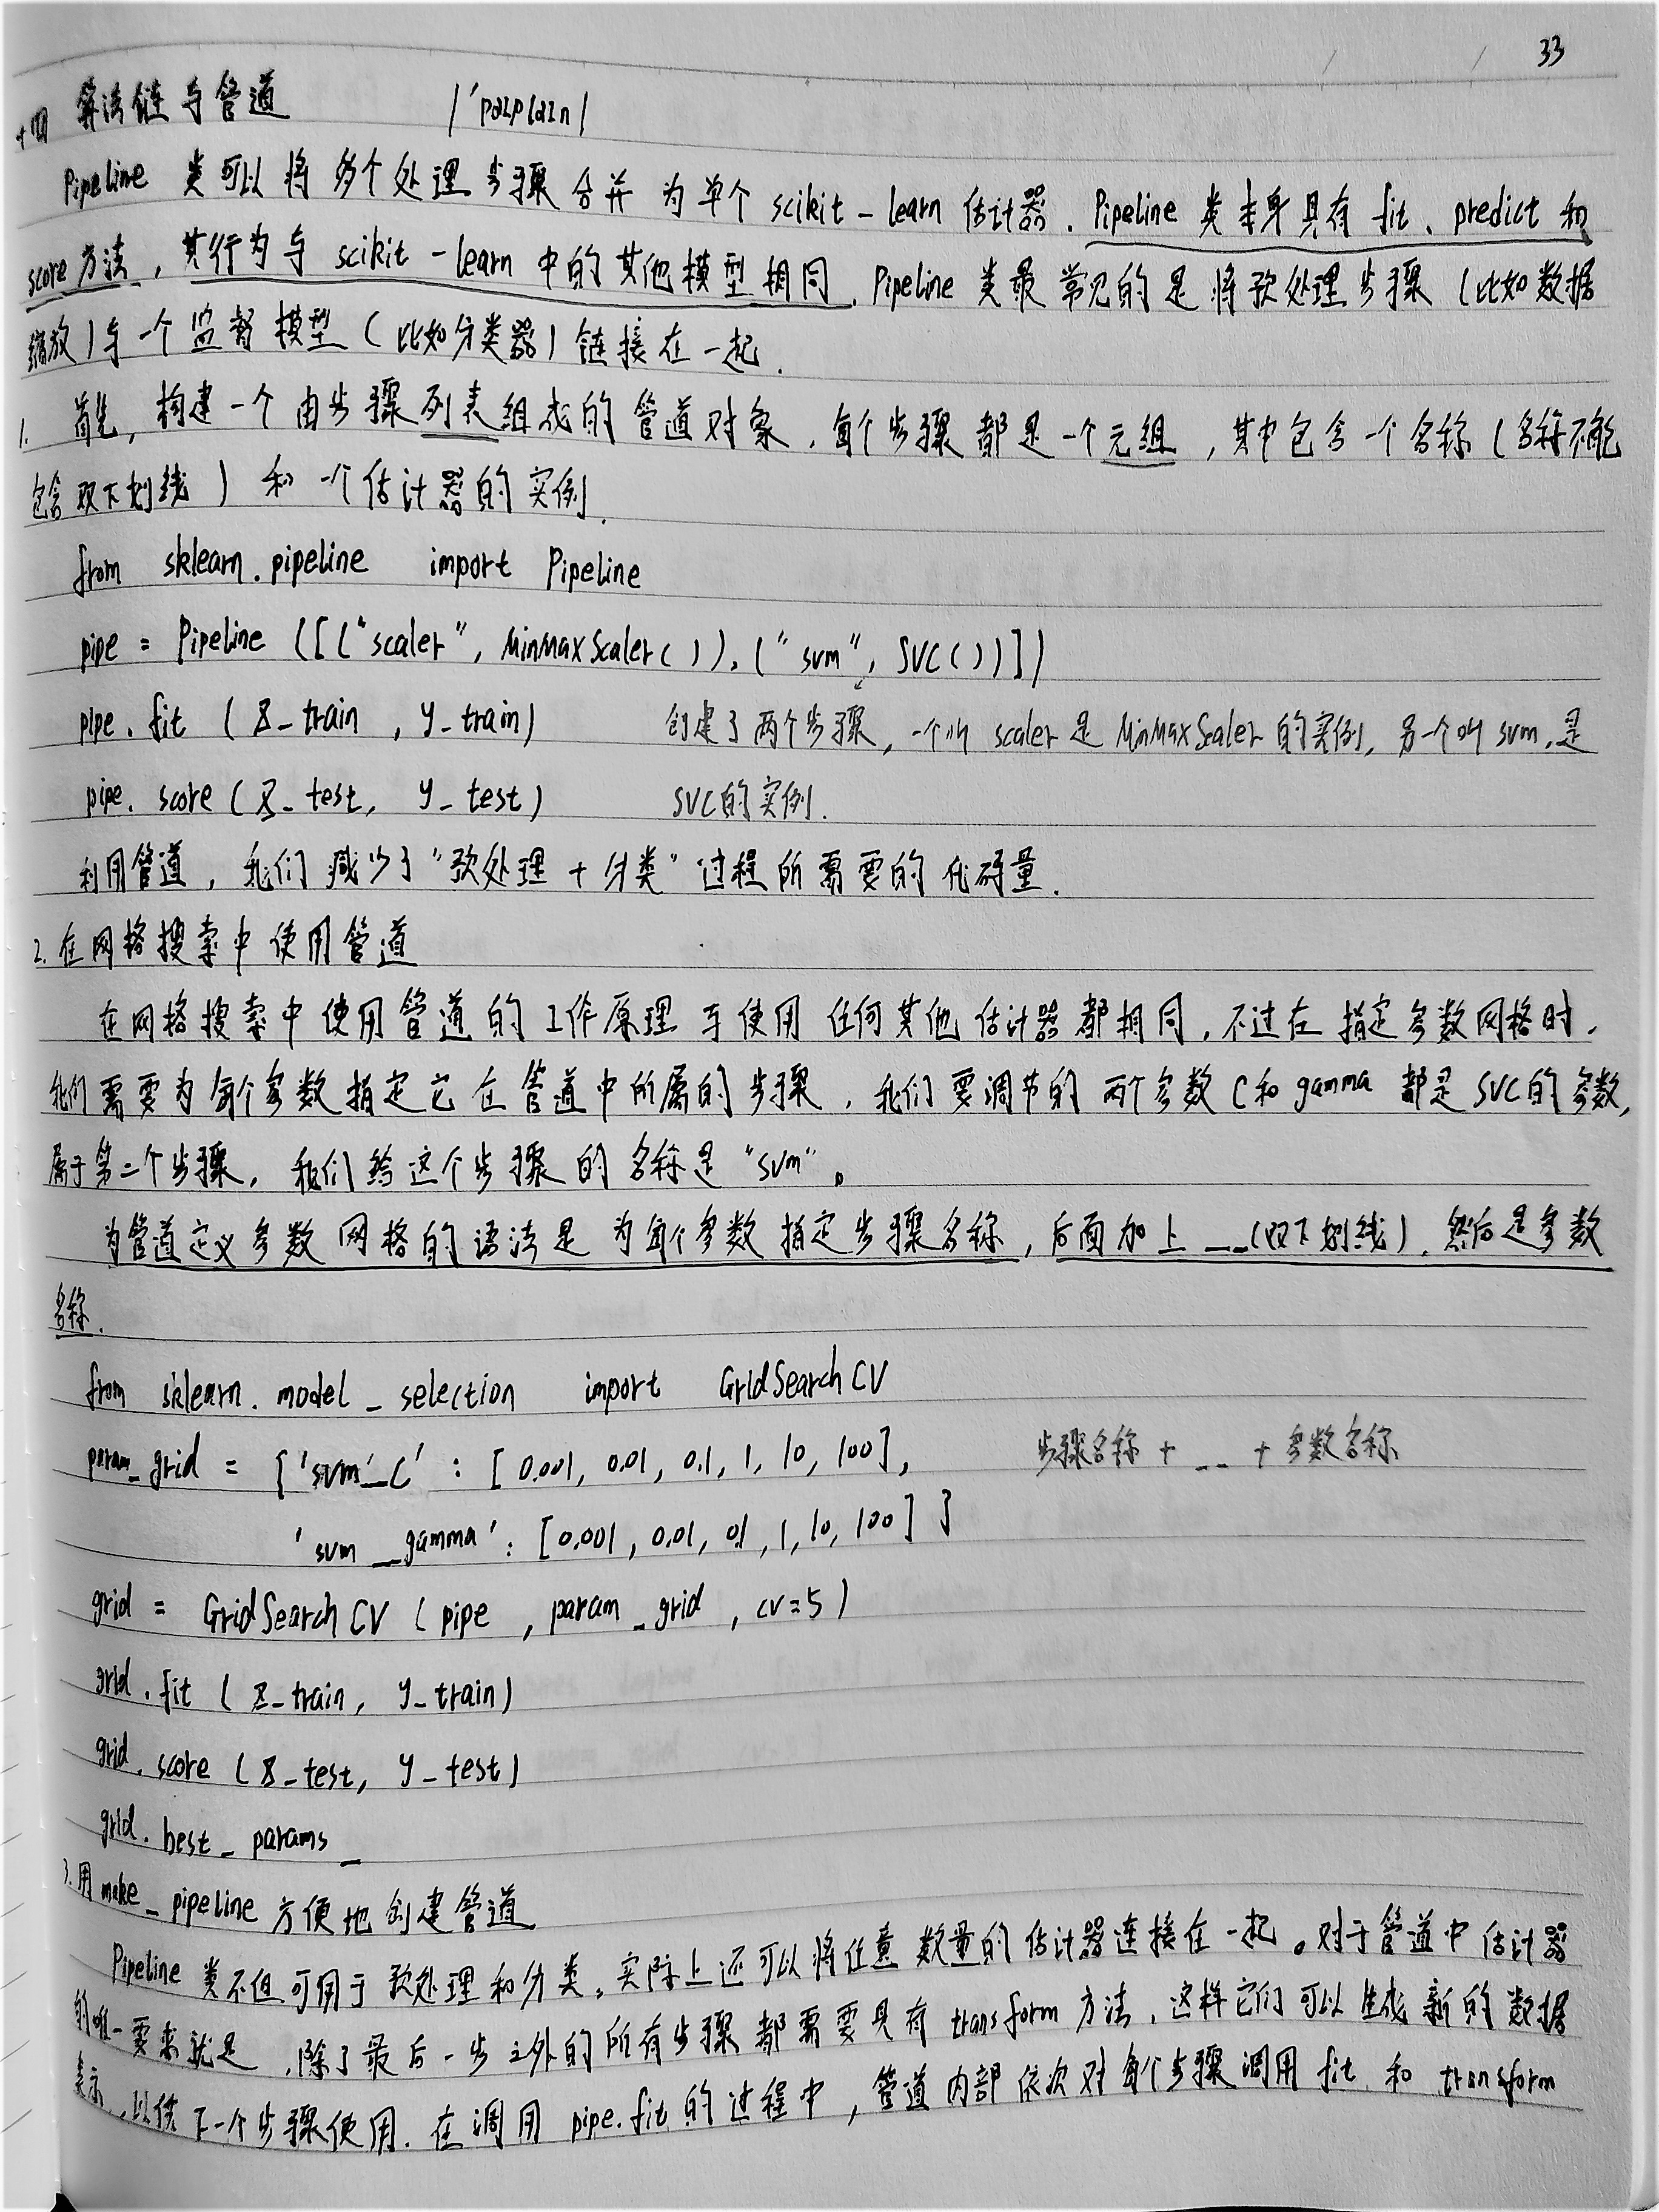 33
十四 算法链与管道 /'paɪplaɪn/
Pipeline 类可以将多个处理步骤合并为单个 scikit-learn 估计器. Pipeline 类本身具有 fit、predict 和
score 方法, 其行为与 scikit-learn 中的其他模型相同. Pipeline 类最常见的是将预处理步骤 (比如数据
缩放) 与一个监督模型 (比如分类器) 链接在一起.
1. 首先, 构建一个由步骤列表组成的管道对象. 每个步骤都是一个元组, 其中包含一个名称 (名称不能
包含双下划线) 和一个估计器的实例.
from sklearn.pipeline import Pipeline
pipe = Pipeline ([("scaler", MinMaxScaler()), ("svm", SVC())])
pipe.fit (X_train, y_train) 创建了两个步骤, 一个叫 scaler 是 MinMaxScaler 的实例, 另一个叫 svm, 是
pipe.score (X_test, y_test) SVC的实例.
利用管道, 我们减少了"预处理 + 分类"过程所需要的代码量.
2. 在网格搜索中使用管道
在网格搜索中使用管道的工作原理与使用任何其他估计器都相同. 不过在指定参数网格时,
我们需要为每个参数指定它在管道中所属的步骤. 我们要调节的两个参数 C和 gamma 都是 SVC的参数,
属于第二个步骤. 我们给这个步骤的名称是"svm"。
为管道定义参数网格的语法是为每个参数指定步骤名称, 后面加上 __(双下划线), 然后是参数
名称.
from sklearn.model_selection import GridSearchCV
param_grid = {'svm__C' : [0.001, 0.01, 0.1, 1, 10, 100], 步骤名称 + __ + 参数名称
'svm__gamma' : [0.001, 0.01, 0.1, 1, 10, 100] }
grid = GridSearchCV (pipe, param_grid, cv=5)
grid.fit (X_train, y_train)
grid.score (X_test, y_test)
grid.best_params_
3. 用 make_pipeline 方便地创建管道
Pipeline 类不但可用于预处理和分类, 实际上还可以将任意数量的估计器连接在一起。对于管道中估计器
的唯一要求就是, 除了最后一步之外的所有步骤都需要具有 transform 方法, 这样它们可以生成新的数据
表示, 以供下一个步骤使用. 在调用 pipe.fit 的过程中, 管道内部依次对每个步骤调用 fit 和 transform